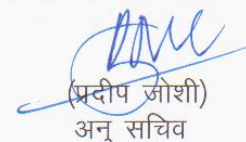 (प्रदीप जोशी)
अनु सचिव